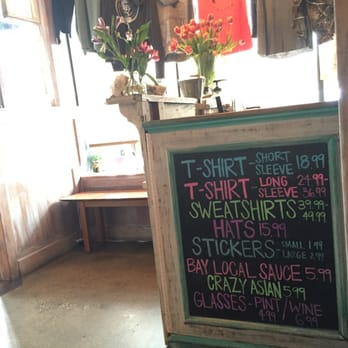 T-SHIRT - SHORT SLEEVE 18.99
T-SHIRT - LONG SLEEVE 24.99- 36.99
SWEATSHIRTS 39.99- 49.99
HATS 15.99
STICKERS - SMALL 1.99
LARGE 2.99
BAY LOCAL SAUCE 5.99
CRAZY ASIAN 5.99
GLASSES - PINT/WINE
4.99 6.99